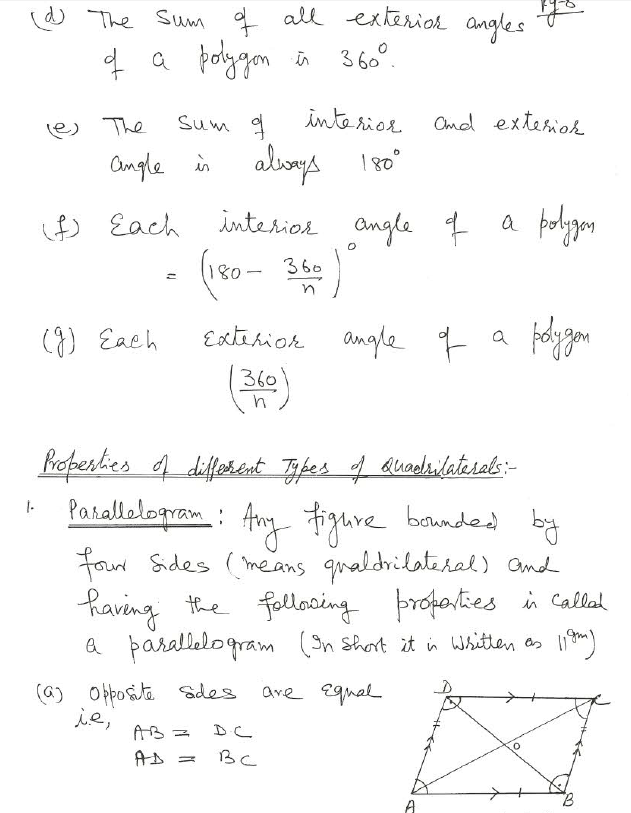 (d) The Sum of all exterior angles
of a polygon is 360°.
(e) The Sum of interior and exterior
angle is always 180°
(f) Each interior angle of a polygon
= (180 - 360/n)°
(g) Each Exterior angle of a polygon
(360/n)
Properties of different Types of Quadrilaterals:-
1. Parallelogram : Any figure bounded by
four sides (means qualdrilateral) and
having the following properties is called
a parallelogram (In Short it is Written as ||gm)
(a) Opposite sides are Equal
i.e,
AB = DC
AD = BC
D C
O
A B